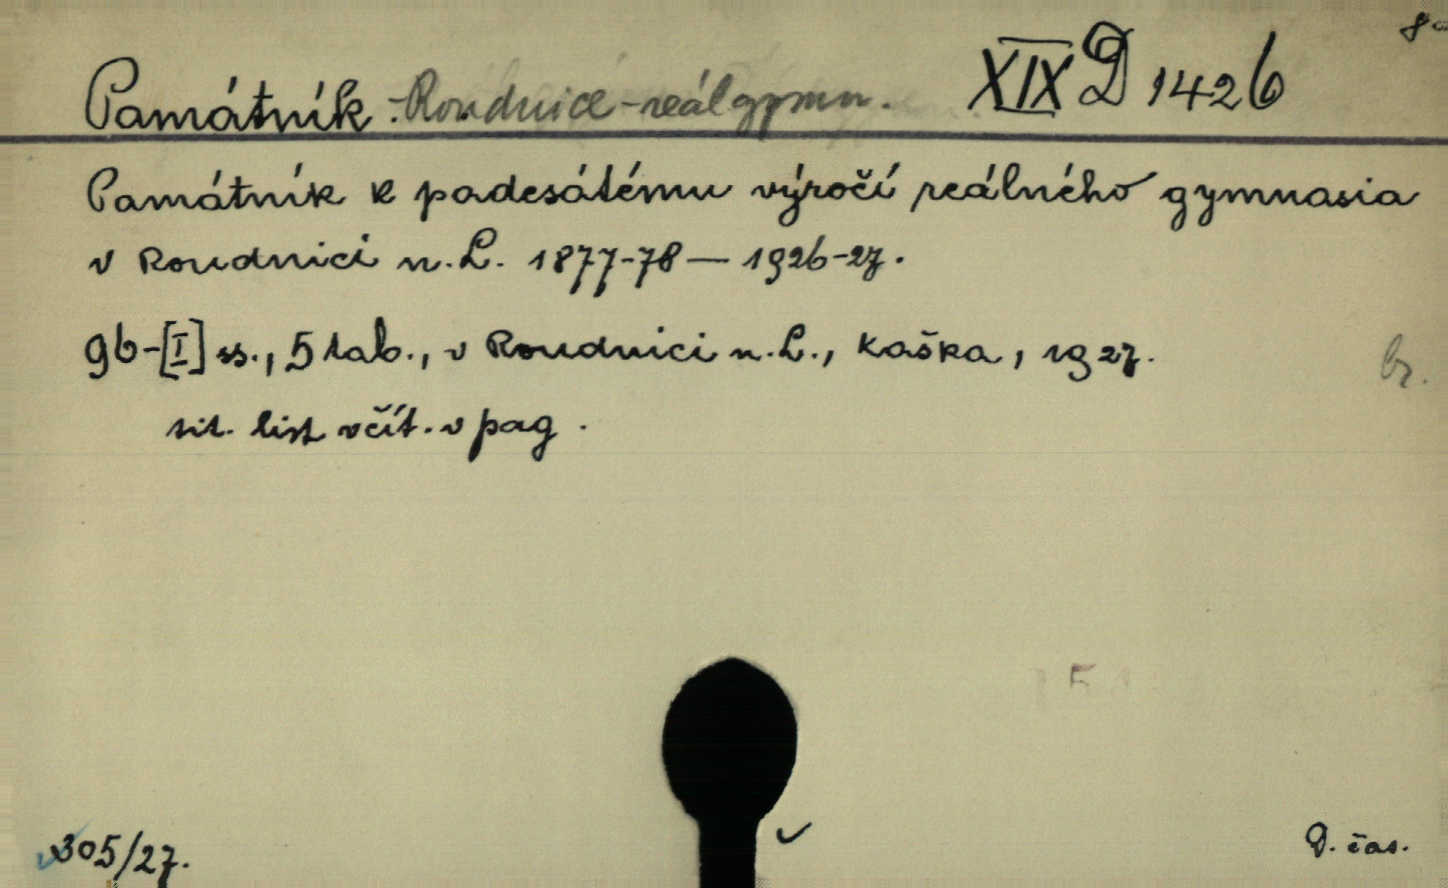 Památník - Roudnice - reál gymn. XIX D 1426
Památník k padesátému výročí reálného gymnasia
v Roudnici n.L. 1877-78 — 1926-27.
96-[I] ss., 5 tab., v Roudnici n.L., Kaška, 1927.
br.
tit. list včít. v pag.
305/27.
D. čas.